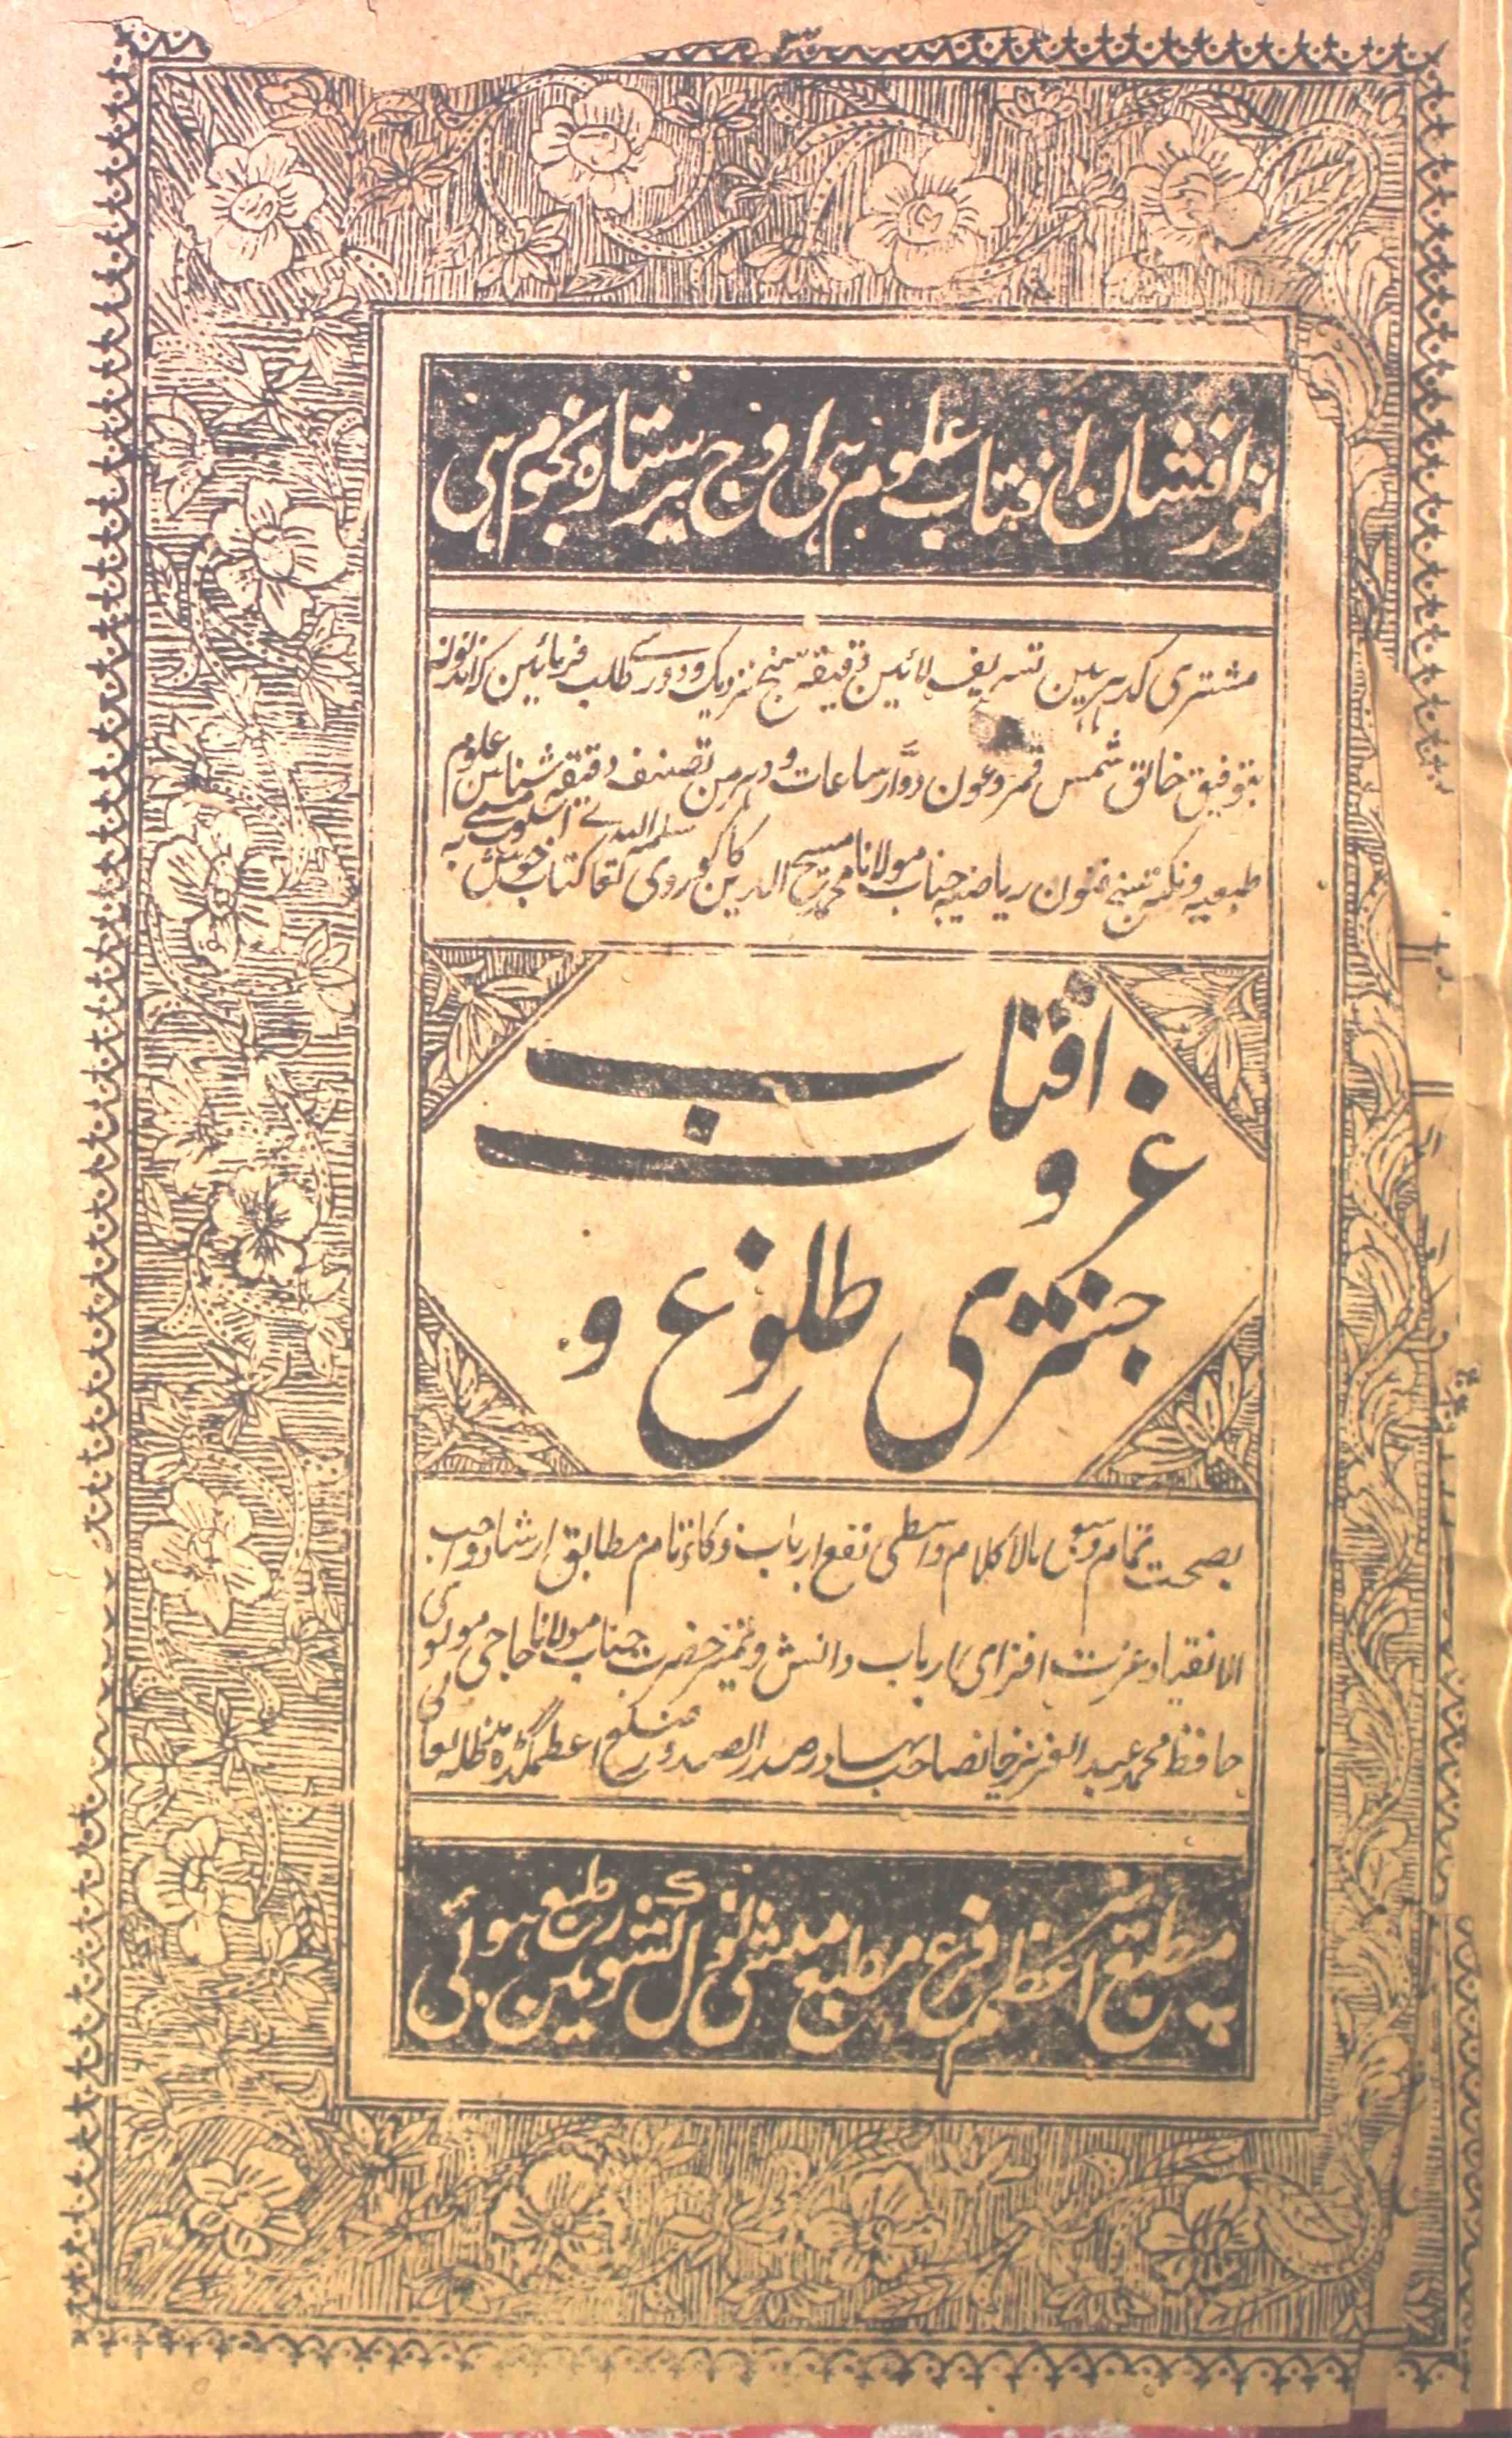 نور افشان افتاب علوم ہی اوج پر ستارہ نجوم ہی
مشتری کدہر ہین تشریف لائین دقیقہ سنج نزدیک و دور سے طلب فرمائین کہ اندنون
بتوفیق خالق شمس و قمر و عون دوّار ساعات و دہر من تصنیف دقیقہ شناس علوم
طبعیہ و نکتہ سنج فنون ریاضیہ جناب مولانا محمد مسیح الدین کاکوروی سلمہ اللہ کتاب خوش اسلوب مسمے بہ
جنتری طلوع و
غروب
افتاب
بصحت تمام و سعی بالا کلام واسطی نفع ارباب ذکاء تام مطابق ارشاد واجب
الانقیاد عزت افزای ارباب دانش و تمیز حضرت جناب مولانا حاجی مولوی
حافظ محمد عبد العزیز خانصاحب بہادر صدر الصدور ضلع اعظمگڈہ مد ظلہ العالی
مطبع اعظم فرع مطبع منشی نول کشور مین طبع ہوئی